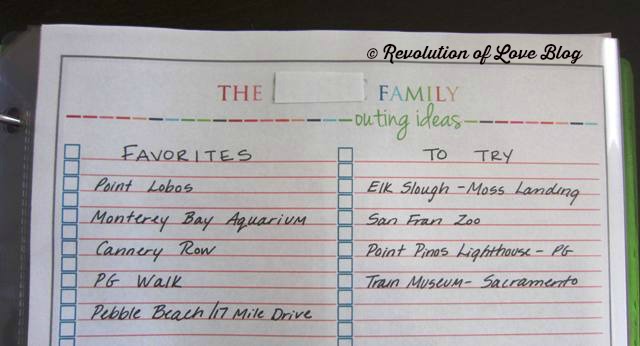 © Revolution of Love Blog
THE FAMILY
outing ideas
FAVORITES
Point Lobos
Monterey Bay Aquarium
Cannery Row
PG Walk
Pebble Beach/17 Mile Drive
TO TRY
Elk Slough - Moss Landing
San Fran Zoo
Point Pinos Lighthouse - PG
Train Museum - Sacramento